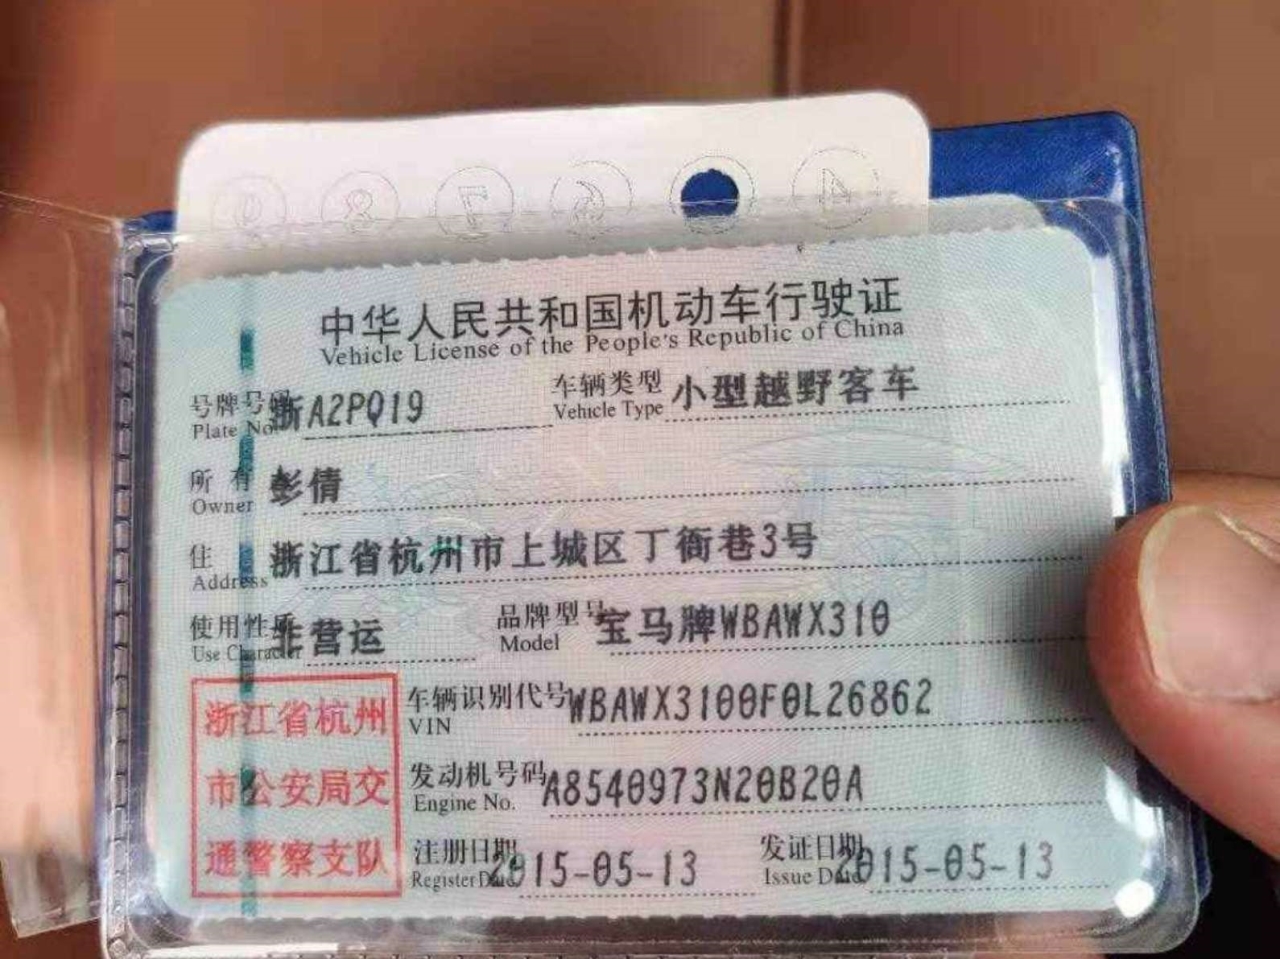 中华人民共和国机动车行驶证
Vehicle License of the People's Republic of China
号牌号码 浙A2PQ19 车辆类型 小型越野客车
Plate No. Vehicle Type
所有 彭倩
Owner
住 浙江省杭州市上城区丁衙巷3号
Address
使用性质 非营运 品牌型号 宝马牌WBAWX310
Use Character Model
浙江省杭州
市公安局交
通警察支队
车辆识别代号 WBAWX3100F0L26862
VIN
发动机号码 A8540973N20B20A
Engine No.
注册日期 2015-05-13 发证日期 2015-05-13
Register Date Issue Date